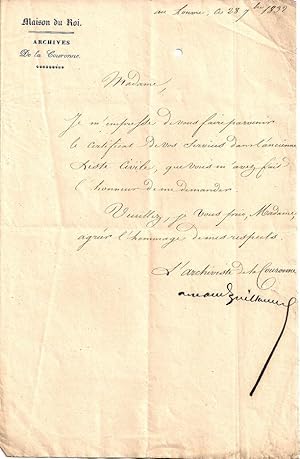 Maison du Roi.
ARCHIVES
De la Couronne.
au Louvre, ce 28 7bre 1832
Madame,
Je m'empresse de vous faire parvenir
le certificat de vos services dans l'ancienne
Liste Civile, que vous m'avez fait
l'honneur de me demander.
Veuillez, je vous prie, Madame,
agréer l'hommage de mes respects.
L'archiviste de la Couronne